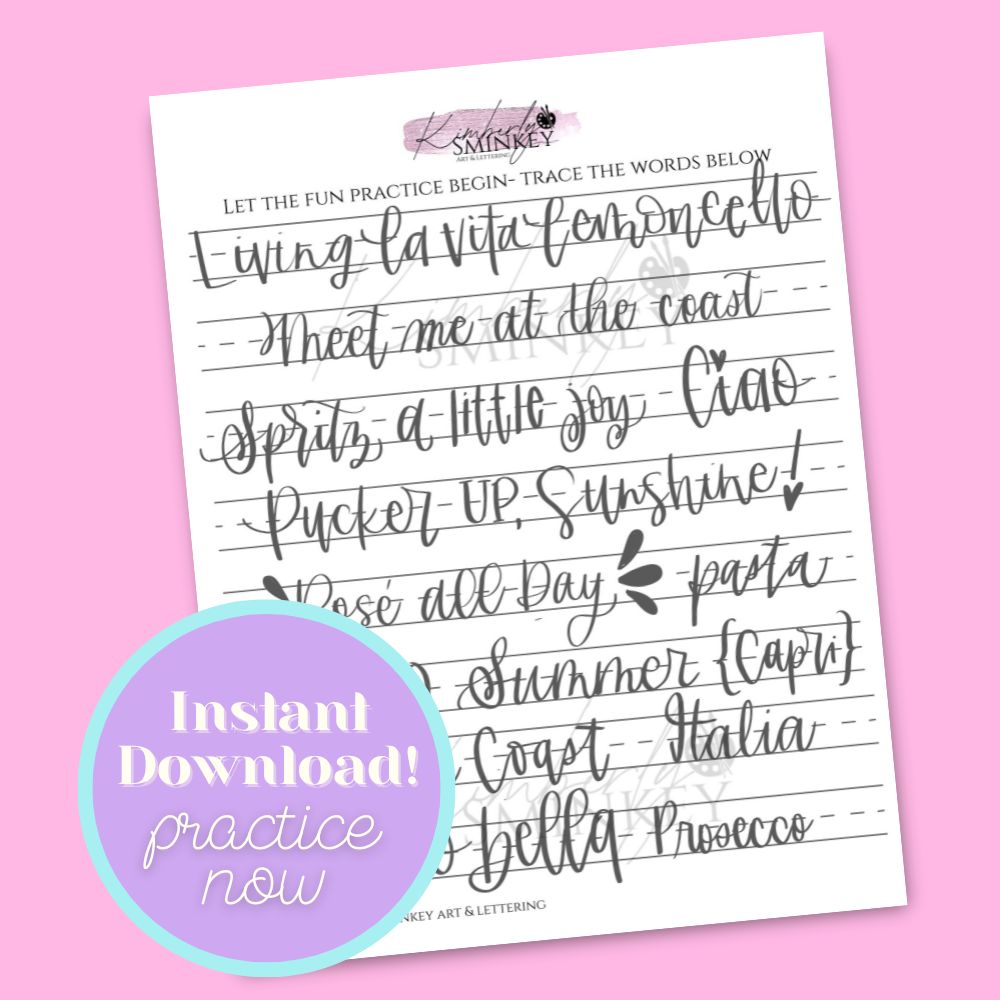 Kimberly
SMINKEY
ART & LETTERING
LET THE FUN PRACTICE BEGIN- TRACE THE WORDS BELOW
Living la vita lemoncello
Meet me at the coast
Spritz a little joy Ciao
Pucker UP, Sunshine!
Rosé all Day pasta
Summer {Capri}
Coast Italia
bella Prosecco
ART & LETTERING
Kimberly
SMINKEY
SMINKEY
Instant
Download!
practice
now